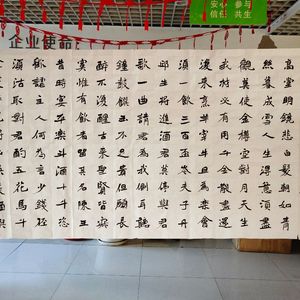 安心 参与
信任 共生
企业使命
高堂明鏡悲白髮朝如青
絲暮成雪人生得意須盡
歡莫使金樽空對月天生
我材必有用千金散盡還
復來烹羊宰牛且為樂會
須一飲三百杯岑夫子丹
邱生將進酒
歌一曲請君為我側耳聽
鐘鼓饌玉不足貴但願長
醉不復醒古來聖賢皆寂
寞惟有飲者留其名陳王
昔時宴平樂斗酒十千恣
歡謔主人何為言少錢徑
沽取對君酌五花馬